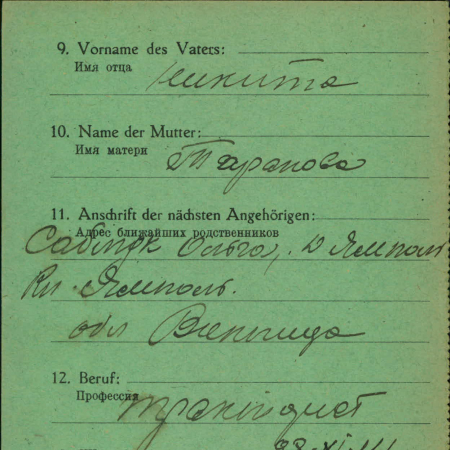 9. Vorname des Vaters:
Имя отца
Никита
10. Name der Mutter:
Имя матери
Тарапова
11. Anschrift der nächsten Angehörigen:
Адрес ближайших родственников
Саблук Ольга, д Ямполь
Ямполь.
обл Винница
12. Beruf:
Профессия